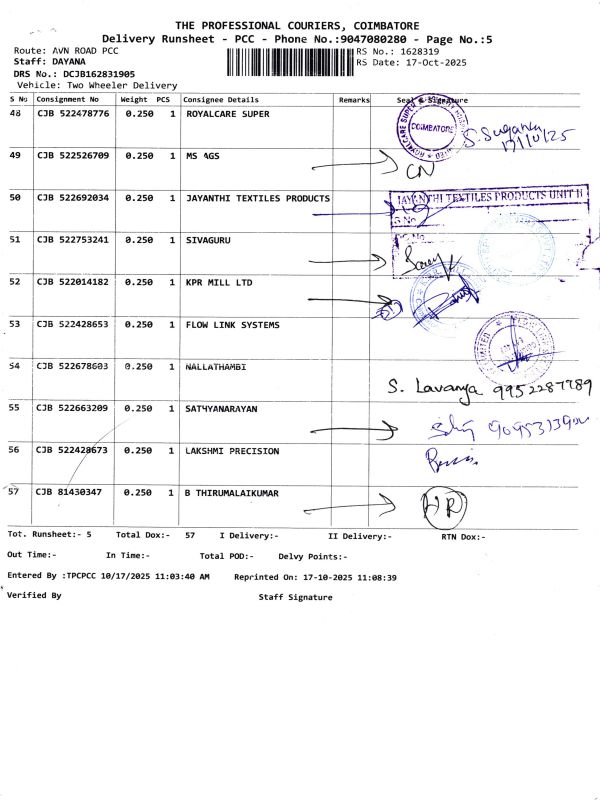 THE PROFESSIONAL COURIERS, COIMBATORE
Delivery Runsheet - PCC - Phone No.:9047080280 - Page No.:5
Route: AVN ROAD PCC RS No.: 1628319
Staff: DAYANA RS Date: 17-Oct-2025
DRS No.: DCJB162831905
Vehicle: Two Wheeler Delivery
S No Consignment No Weight PCS Consignee Details Remarks Seal & Signature
48 CJB 522478776 0.250 1 ROYALCARE SUPER
ROYALCARE SUPER COIMBATORE
S. Suganya
17/10/25
49 CJB 522526709 0.250 1 MS AGS
CN
50 CJB 522692034 0.250 1 JAYANTHI TEXTILES PRODUCTS
JAYANTHI TEXTILES PRODUCTS UNIT II
S.No
51 CJB 522753241 0.250 1 SIVAGURU
52 CJB 522014182 0.250 1 KPR MILL LTD
53 CJB 522428653 0.250 1 FLOW LINK SYSTEMS
54 CJB 522678603 0.250 1 NALLATHAMBI
S. Lavanya 9952287789
55 CJB 522663209 0.250 1 SATHYANARAYAN
56 CJB 522428673 0.250 1 LAKSHMI PRECISION
57 CJB 81430347 0.250 1 B THIRUMALAIKUMAR
HR
Tot. Runsheet:- 5 Total Dox:- 57 I Delivery:- II Delivery:- RTN Dox:-
Out Time:- In Time:- Total POD:- Delvy Points:-
Entered By :TPCPCC 10/17/2025 11:03:40 AM Reprinted On: 17-10-2025 11:08:39
Verified By Staff Signature